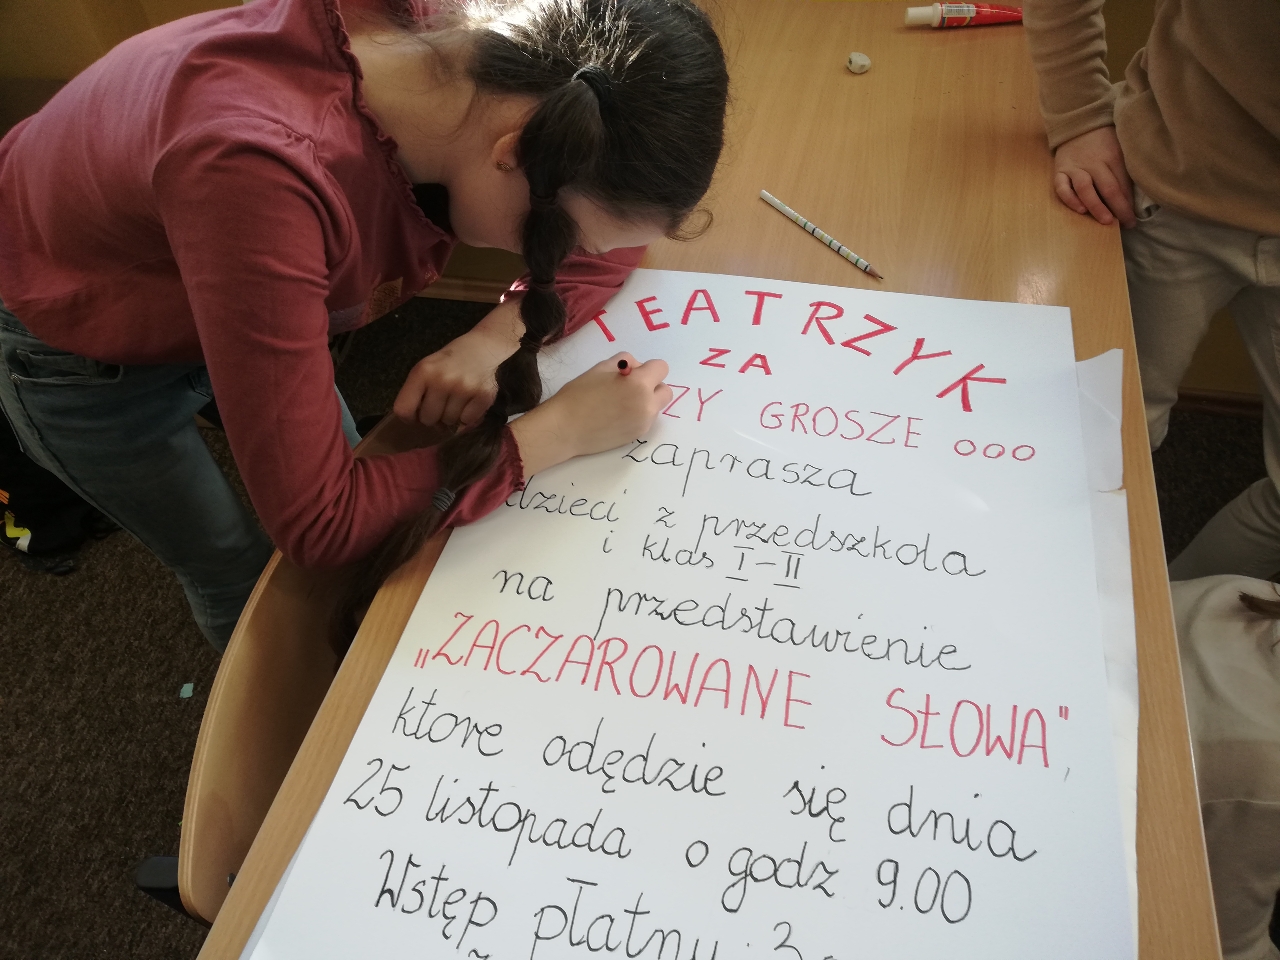 TEATRZYK
ZA
ZY GROSZE ooo
zaprasza
dzieci z przedszkola
i klas I-II
na przedstawienie
„ZACZAROWANE SŁOWA",
które odędzie się dnia
25 listopada o godz 9.00
Wstęp płatny: 3